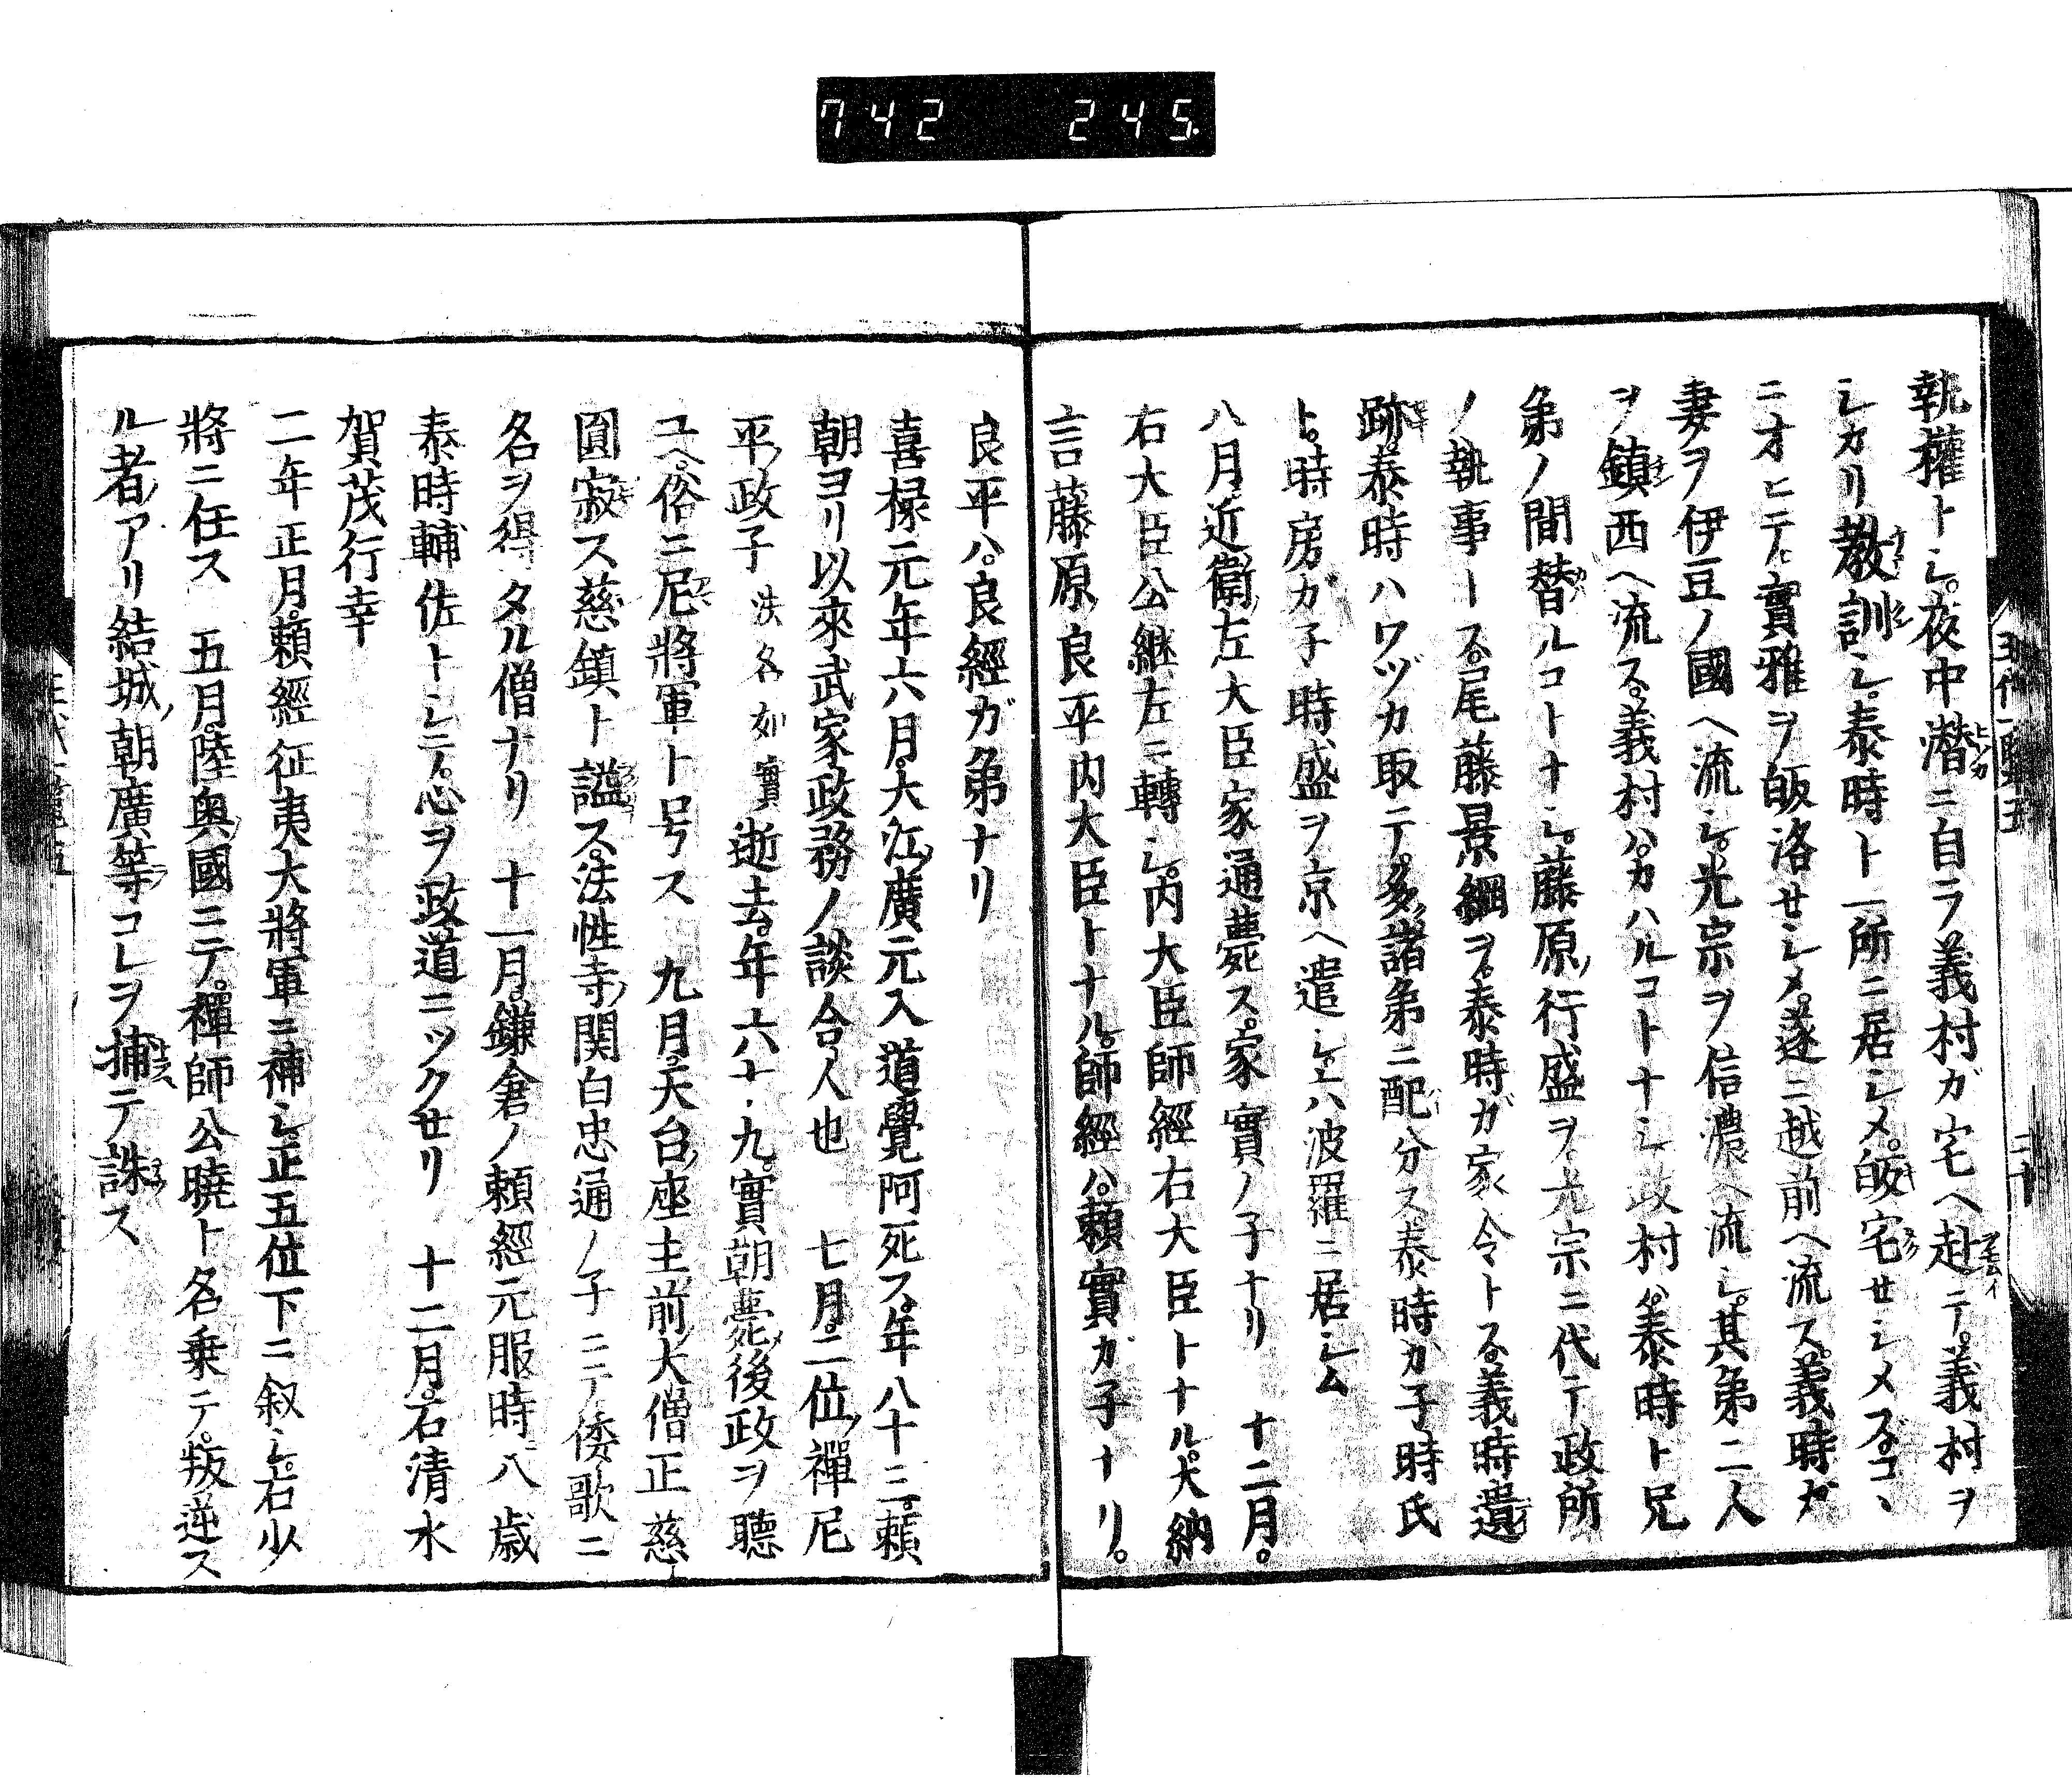 742 245
執權トシ。夜中潜ニ自ラ義村ガ宅ヘ赴テ。義村ヲ
シカリ教訓シ。泰時ト一所ニ居シメ。皈宅セシメズ。コヽ
ニオヒテ。實雅ヲ皈洛セシメ。遂ニ越前ヘ流ス。義時ガ
妻ヲ伊豆ノ國ヘ流シ。光宗ヲ信濃ヘ流シ。其弟二人
ヲ鎮西ヘ流ス。義村ハ。カハルコトナシ政村ハ。泰時ト兄
弟ノ間替ルコトナシ。藤原ノ行盛ヲ。光宗ニ代テ政所
ノ執事トス。尾藤景綱ヲ。泰時ガ家令トス。義時遺
跡。泰時ハワヅカ取テ。多ク諸弟ニ配分ス。泰時ガ子時氏
ト。時房ガ子時盛ヲ京ヘ遣シ。六波羅ニ居シム
八月近衛ノ左大臣家通薨ス。家實ノ子ナリ 十二月。
右大臣公継左ニ轉シ。内大臣師經右大臣トナル。大納
言藤原ノ良平内大臣トナル。師經ハ。頼實ガ子ナリ。
良平ハ。良經ガ弟ナリ
喜禄元年六月。大江ノ廣元入道覺阿死ス。年八十三。頼
朝ヨリ以來武家政務ノ談合人也 七月。二位ノ禪尼
平ノ政子 法名如實 逝去。年六十九。實朝薨メ後政ヲ聽
ユヘ。俗ニ尼將軍ト号ス 九月。天台ノ座主前ノ大僧正慈
圓寂ス慈鎮ト謚ス。法性寺ノ関白忠通ノ子ニテ倭歌ニ
名ヲ得タル僧ナリ 十一月。鎌倉ノ頼經元服時八歳
泰時輔佐トシテ。心ヲ政道ニツクセリ 十二月。石清水
賀茂行幸
二年正月。頼經征夷大將軍ニ補シ。正五位下ニ叙シ。右少
將ニ任ス 五月。陸奥國ニテ。禪師公暁ト名乗テ。叛逆ス
ル者アリ結城ノ朝廣等コレヲ捕テ誅ス